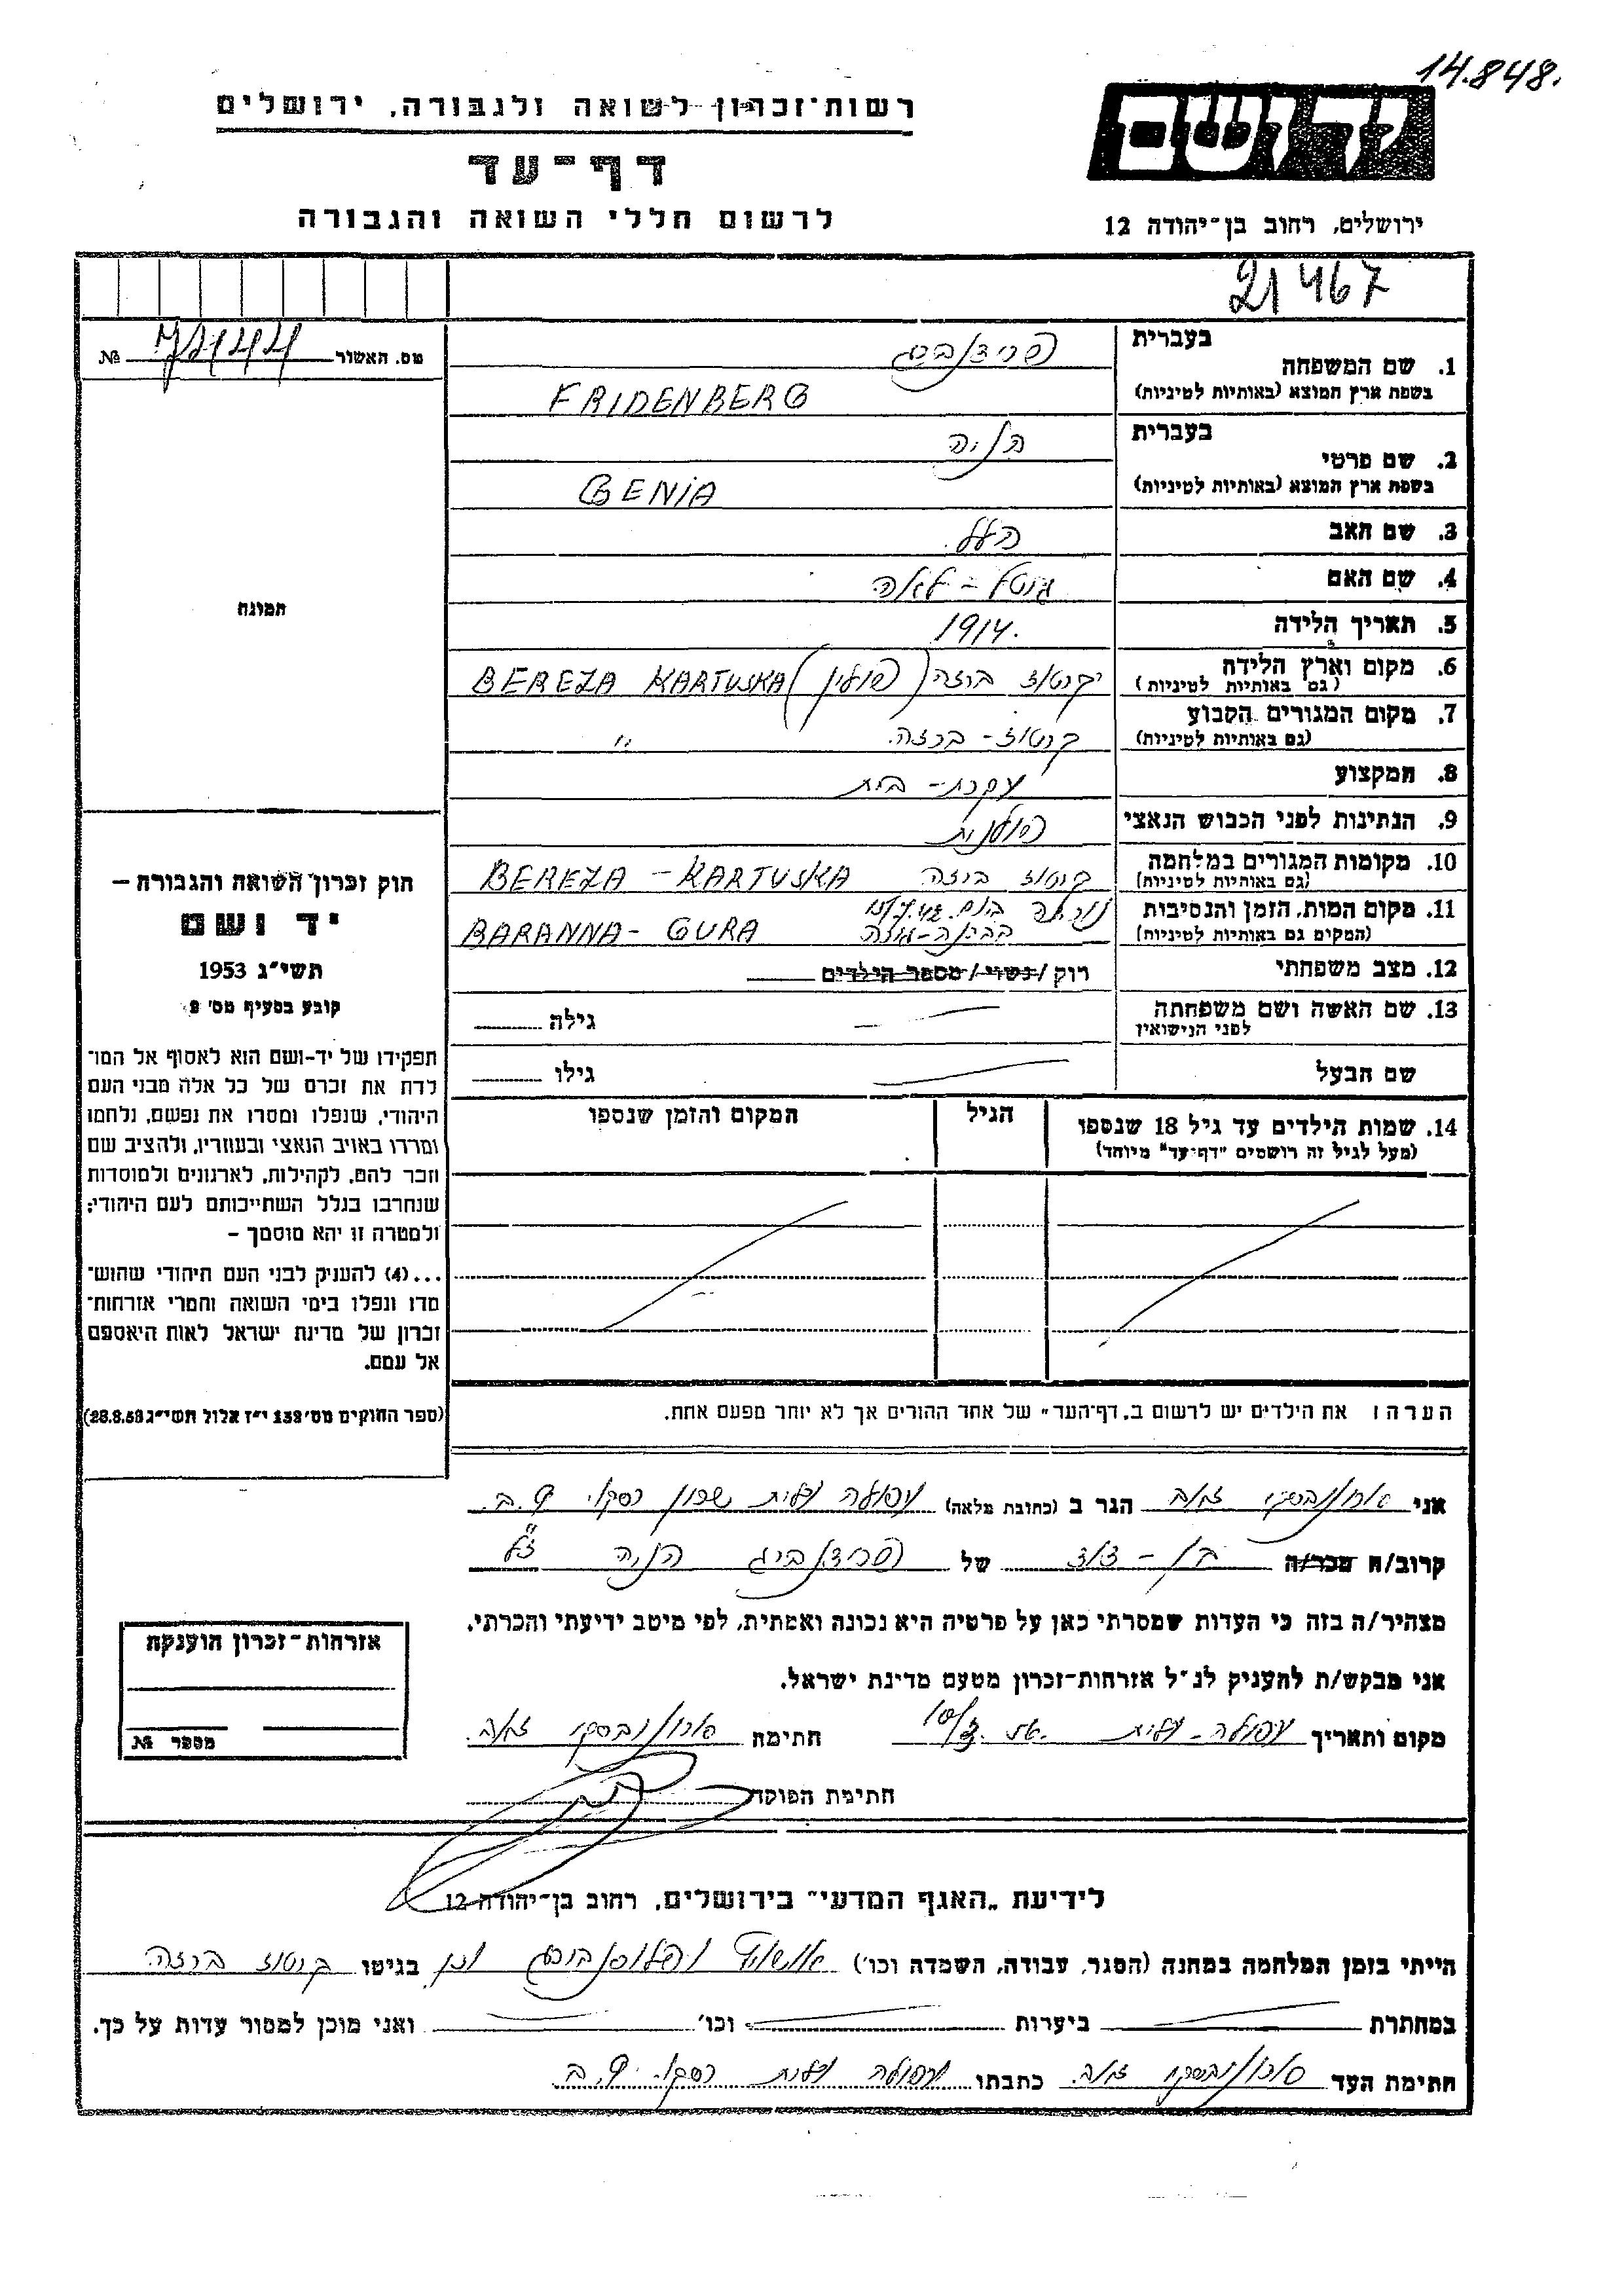 14.848.
רשות־זכרון לשואה ולגבורה, ירושלים
יד ושם
דף־עד
לרשום חללי השואה והגבורה
ירושלים, רחוב בן־יהודה 12
21467
מס. האשור №
בעברית
1. שם המשפחה
(בשפת ארץ המוצא (באותיות לטיניות
FRIDENBERG
בעברית
2. שם פרטי
(בשפת ארץ המוצא (באותיות לטיניות
BENIA
3. שם האב הלל
4. שם האם
5. תאריך הלידה 1914.
6. מקום וארץ הלידה
(גם באותיות לטיניות)
קרטוז ברזה (פולין) BEREZA KARTUSKA
7. מקום המגורים הקבוע
(גם באותיות לטיניות)
קרטוז - ברזה. "
8. המקצוע עקרת - בית
9. הנתינות לפני הכבוש הנאצי פולנית
10. מקומות המגורים במלחמה
(גם באותיות לטיניות)
קרטוז ברזה BEREZA - KARTUSKA
11. מקום המות, הזמן והנסיבות
(המקום גם באותיות לטיניות)
BARANNA - GURA
12. מצב משפחתי רוק / נשוי / מספר הילדים
13. שם האשה ושם משפחתה
לפני הנישואין
גילה
שם הבעל גילו
14. שמות הילדים עד גיל 18 שנספו
(מעל לגיל זה רושמים "דף־עד" מיוחד)
הגיל
המקום והזמן שנספו
הערה: את הילדים יש לרשום ב"דף־העד" של אחד ההורים אך לא יותר מפעם אחת.
תמונה
חוק זכרון השואה והגבורה –
יד ושם
תשי"ג 1953
קובע בסעיף מס' 2
תפקידו של יד־ושם הוא לאסוף אל המו־
לדת את זכרם של כל אלה מבני העם
היהודי, שנפלו ומסרו את נפשם, נלחמו
ומרדו באויב הנאצי ובעוזריו, ולהציב שם
וזכר להם, לקהילות, לארגונים ולמוסדות
שנחרבו בגלל השתייכותם לעם היהודי;
ולמטרה זו יהא מוסמך –
...(4) להעניק לבני העם היהודי שהוש־
מדו ונפלו בימי השואה והמרי אזרחות־
זכרון של מדינת ישראל לאות היאספם
אל עמם.
(ספר החוקים מס' 132 י"ז אלול תשי"ג 28.8.53)
אני הגר ב (כתובת מלאה) עפולה עלית
קרוב/ה מכר/ה בן - דוד של הניה ז"ל
מצהיר/ה בזה כי העדות שמסרתי כאן על פרטיה היא נכונה ואמתית, לפי מיטב ידיעתי והכרתי.
אני מבקש/ת להעניק לנ"ל אזרחות־זכרון מטעם מדינת ישראל.
מקום ותאריך עפולה - עלית חתימת
חתימת הפוקד
אזרחות־זכרון הוענקה
מספר №
לידיעת "האגף המדעי" בירושלים, רחוב בן־יהודה 12
הייתי בזמן המלחמה במחנה (הסגר, עבודה, השמדה וכו') אושויץ בגיטו קרטוז ברזה
במחתרת ביערות וכו' ואני מוכן למסור עדות על כך.
חתימת העד כתבתו עפולה עלית